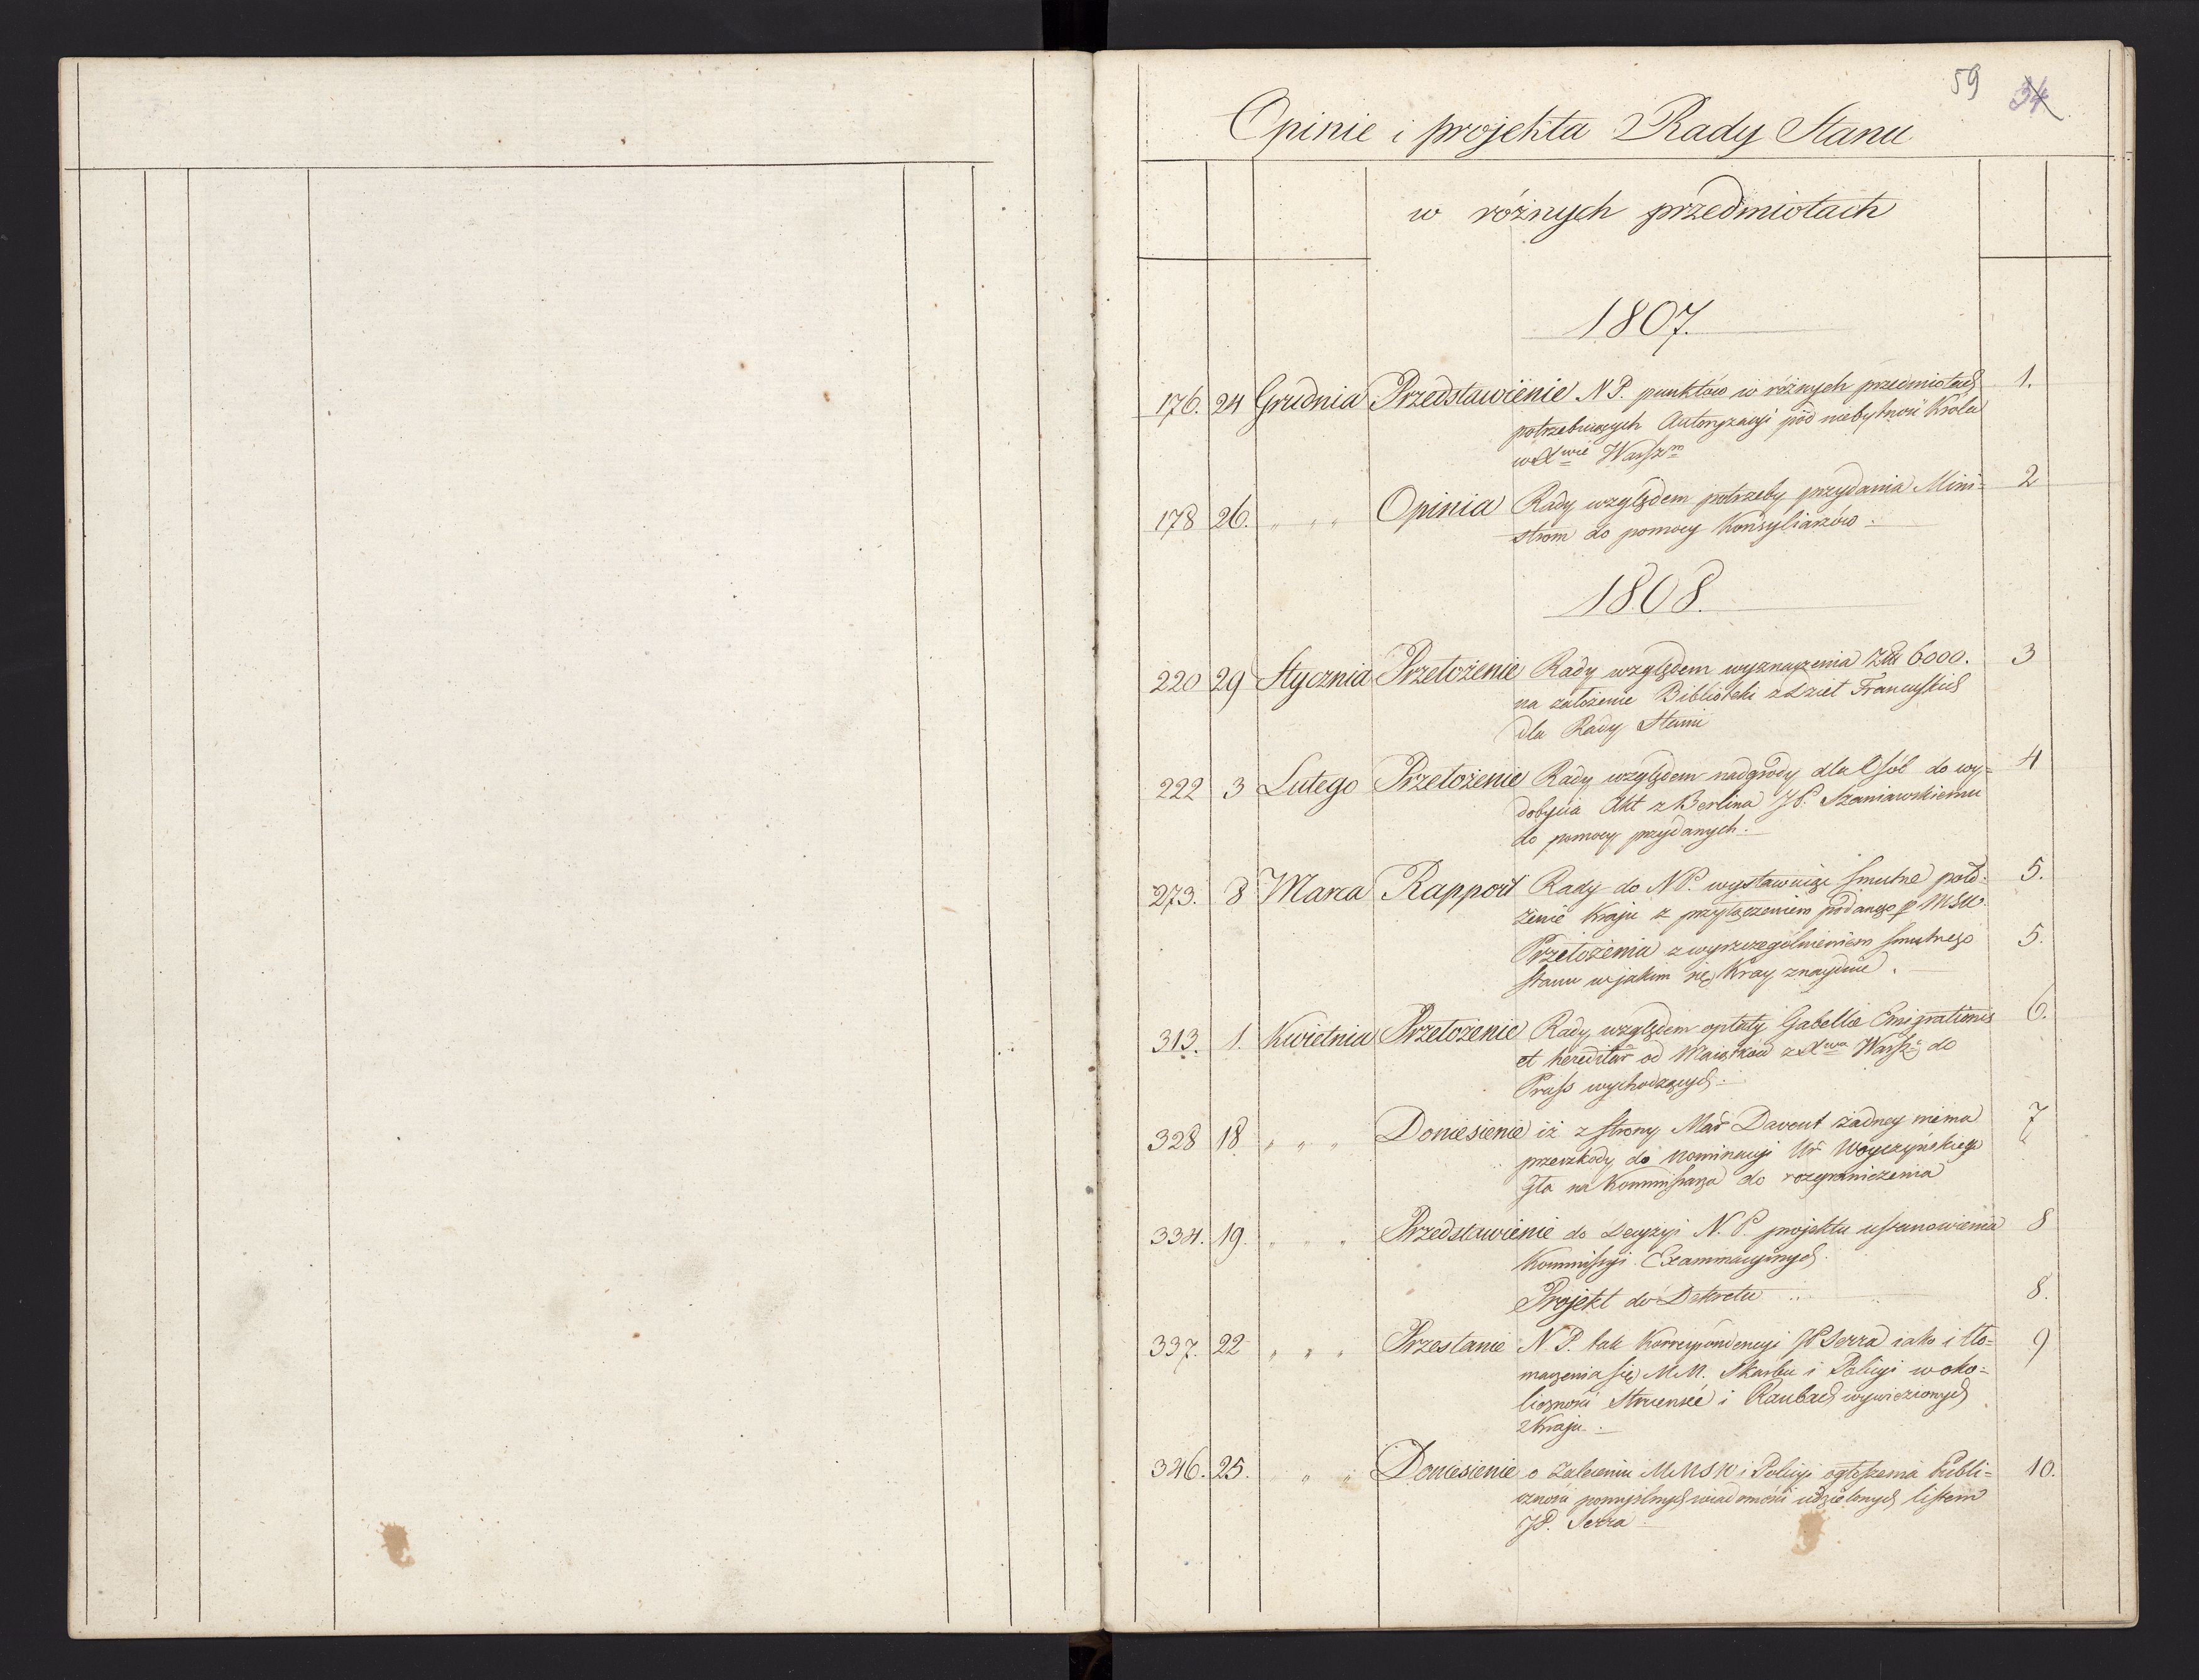 59 34
Opinie i projekta Rady Stanu
w różnych przedmiotach
1807.
176. 24 Grudnia Przedstawienie N P. punktów w różnych przedmiotach 1.
potrzebuiących Autoryzacyi pod niebytność Króla
w Xwie Warszm
178 26. " " " Opinia Rady względem potrzeby przydania Mini= 2
strom do pomocy Konsyliarzów.
1808.
220 29 Stycznia Przełożenie Rady względem wyznaczenia Złł 6000. 3
na założenie Biblioteki z dzieł Francuskich
dla Rady Stanu
222 3 Lutego Przełożenie Rady względem nadgrody dla Osób do wy= 4
dobycia Akt z Berlina JP. Szaniawskiemu
do pomocy przydanych.
273. 8 Marca Rapport Rady do N P. wystawuiąc smutne poło= 5.
żenie Kraju z przyłączeniem podanego p MSW.
Przełożenia z wyszczególnieniem smutnego 5.
stanu w jakim się Kray znayduie.
313. 1. Kwietnia Przełożenie Rady względem opłaty Gabellæ Emigrationis 6.
et hereditar od Maiątków z Xwa Warsz: do
Pruss wychodzących.
328 18 " " " Doniesienie iż z strony Mar Davout żadney niema 7
przeszkody do nominacyi Ur Woyczyńskiego
Gła na Kommissarza do rozgraniczenia
334. 19. " " " Przedstawienie do Decyzyi N. P. projektu ustanowienia 8
Kommissyi Examinacyinych.
Projekt do Dekretu 8.
337. 22 " " " Przesłanie N P. tak Korrespondencyi JP Serra iako i tło= 9
maczenia się MM. Skarbu i Policyi w oko=
liczności Struensée i Raubach wywiezionych
z Kraju.
346. 25. " " Doniesienie o zaleceniu MMSW i Policyi ogłoszenia Publi= 10.
czności pomyślnych wiadomości udzielonych listem
JP. Serra